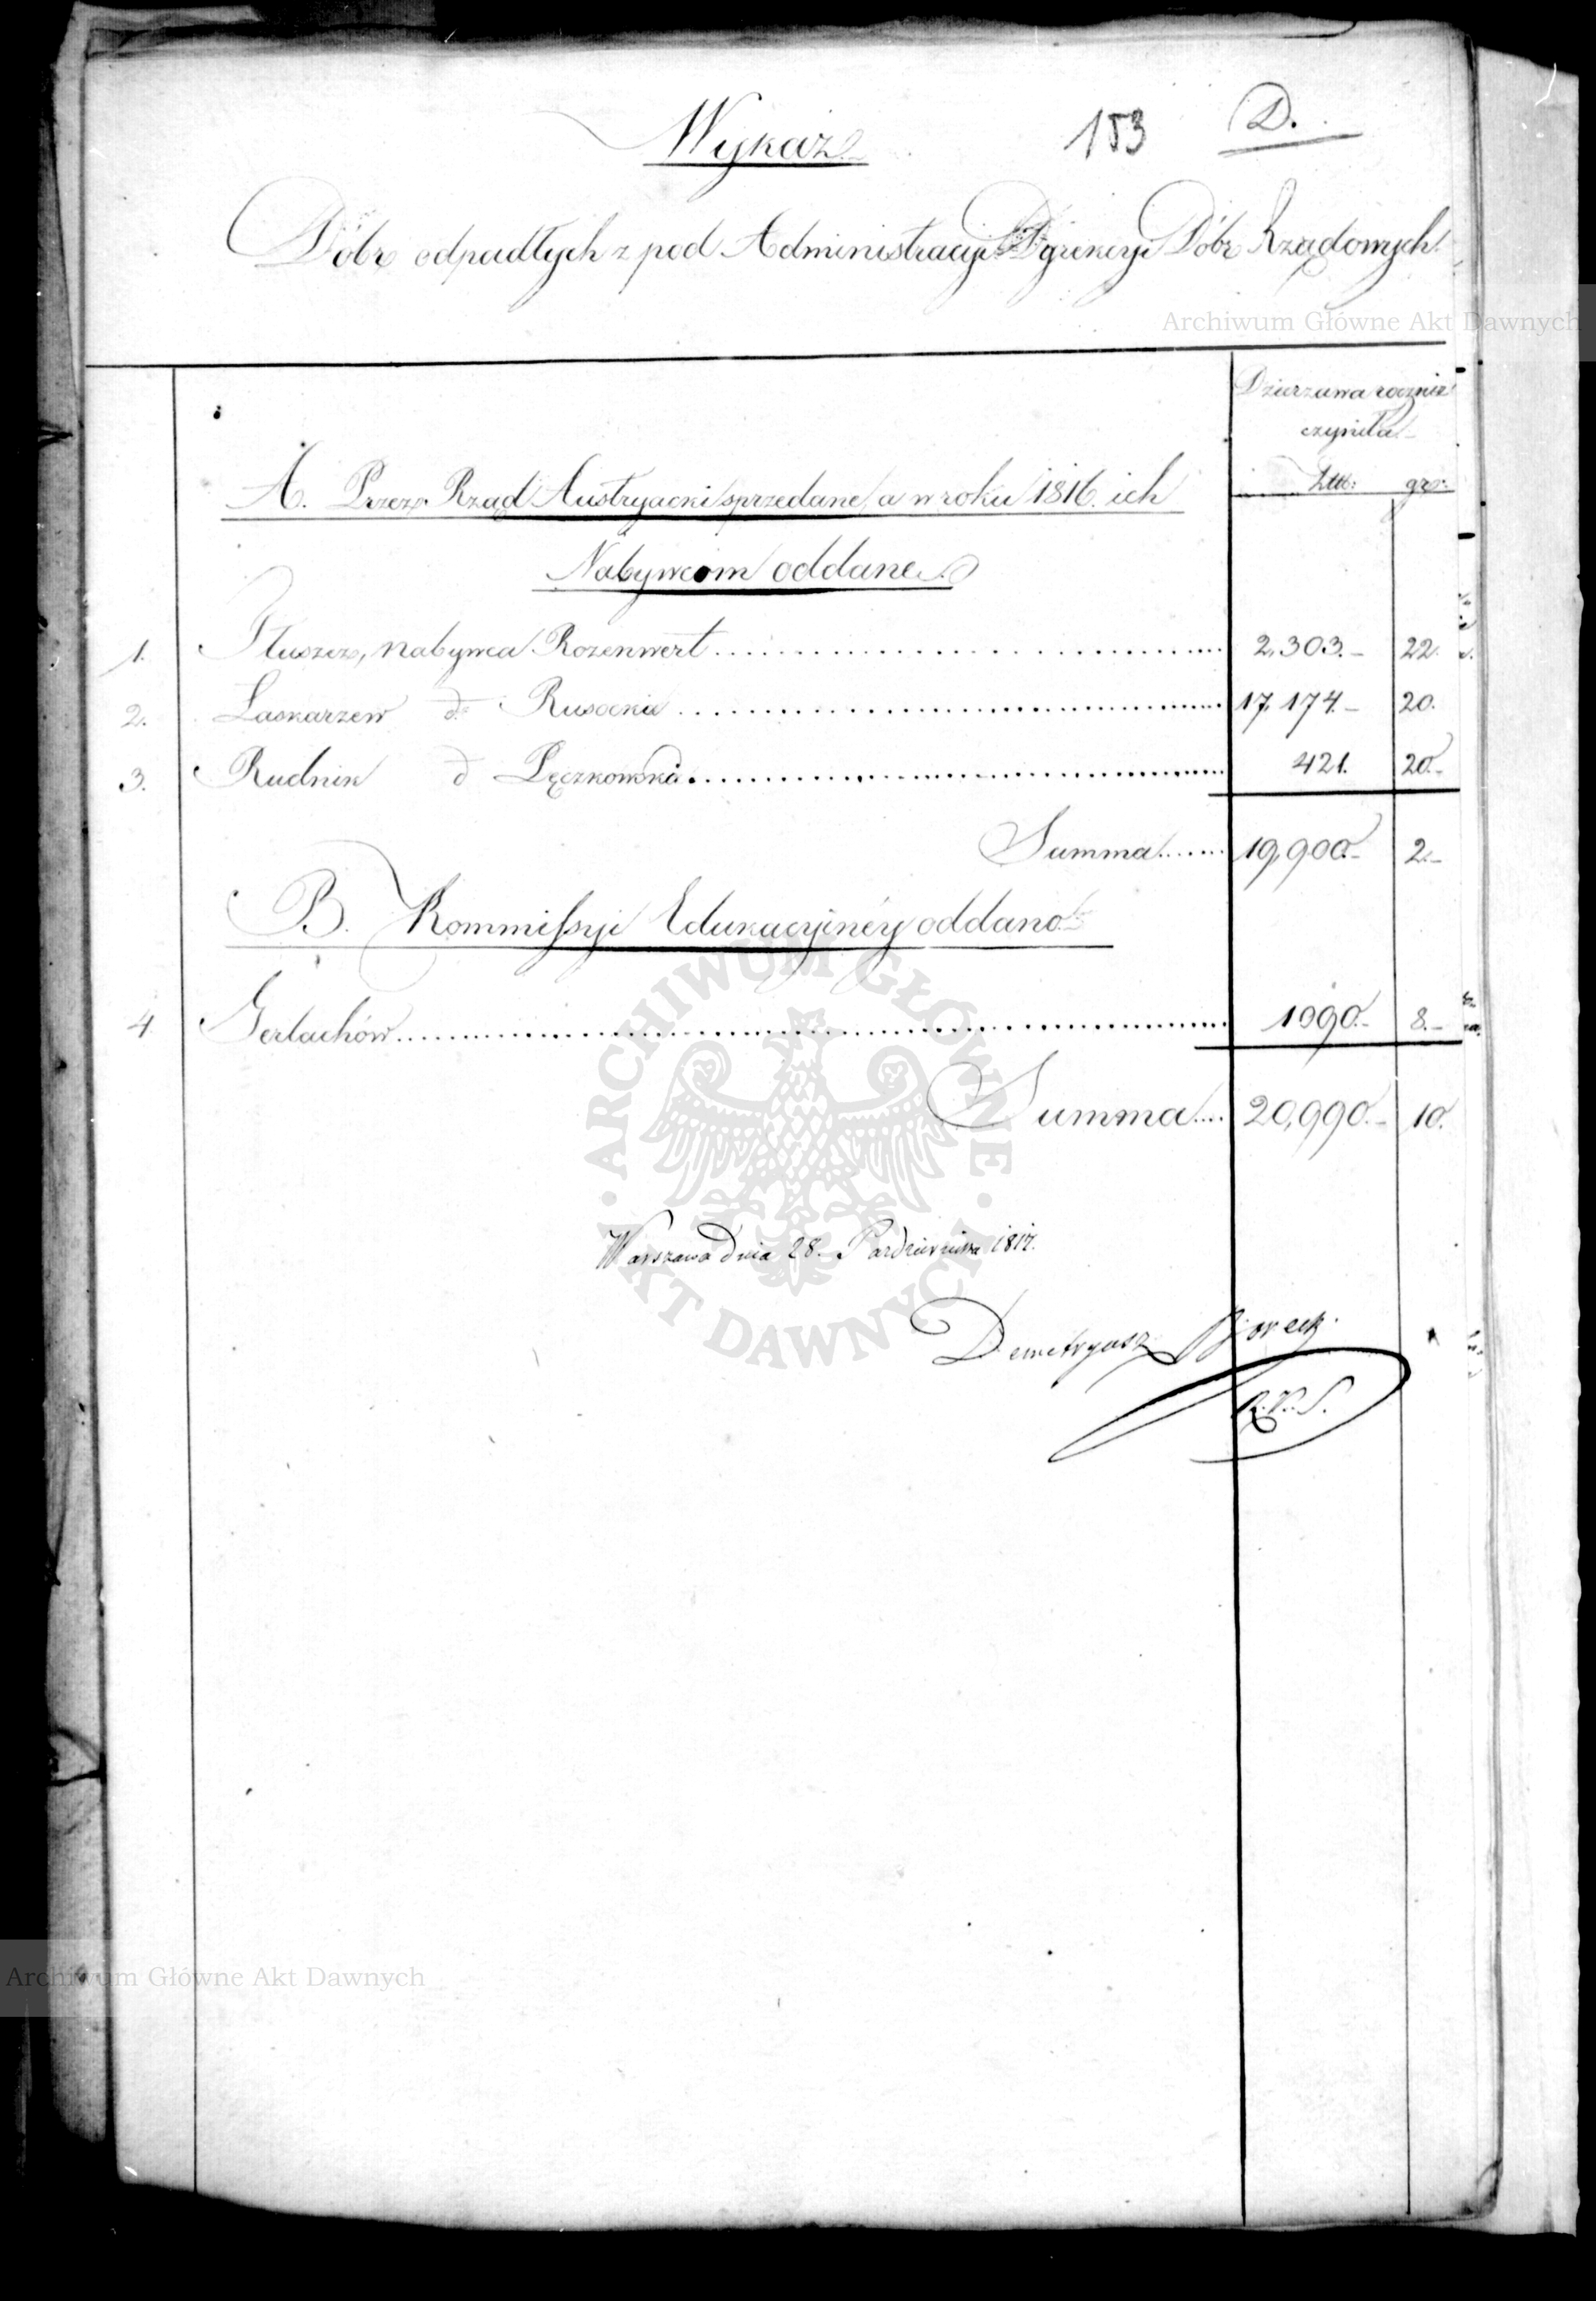 Wykaz
153
D.
Dóbr odpadłych z pod Administracyi Dyrekcyi Dóbr Rządowych
Archiwum Główne Akt Dawnych
Dzierzawa rocznie
czyniła
Złtt: gr:
A. Przez Rząd Austryacki sprzedane, a w roku 1816. ich
Nabywcom oddane
1. Tłuszcz, nabywca Rozenwert 2,303.- 22.
2. Laskarzew do Rusocki 17,174.- 20.
3. Rudnik do Łęczkowski 421. 20.-
Summa 19,900.- 2.-
B. Kommissyi Edukacyinéy oddano
4 Gerlachów 1090.- 8.-
Summa 20,990.- 10.
Warszawa dnia 28. Pazdziernika 1817.
Demetryusz
R.K.S.
ARCHIWUM GŁÓWNE AKT DAWNYCH
Archiwum Główne Akt Dawnych